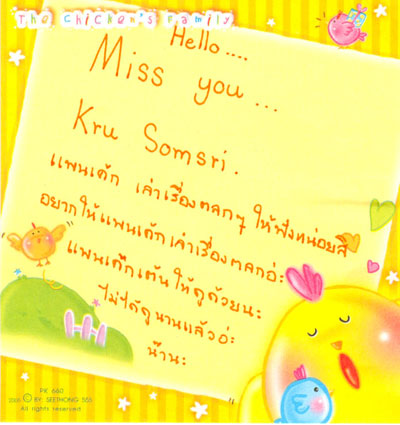 The Chicken's Family
Hello....
Miss you...
Kru Somsri.
แพนเค้ก เล่าเรื่องตลกๆ ให้ฟังหน่อยสิ
อยากให้แพนเค้กเล่าเรื่องตลกอ่ะ
แพนเค้กเต้นให้ดูด้วยนะ
ไม่ได้ดูนานแล้วอ่ะ
น้านะ
PK 660
2005 © BY SEETHONG 555
All rights reserved